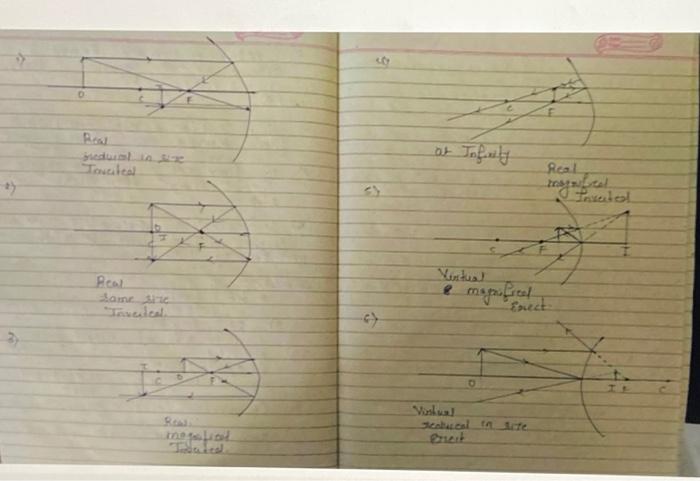 1)
O
C
I
F
Real
reduced in size
Inverted
2)
O
I
F
Real
same size
Inverted.
3)
I
C
O
F
Real.
magnified
Inverted.
4)
C
F
at Infinity
Real
magnified
Inverted
5)
C
F
I
Virtual
& magnified
Erect.
6)
O
I
F
C
Virtual
reduced in size
Erect